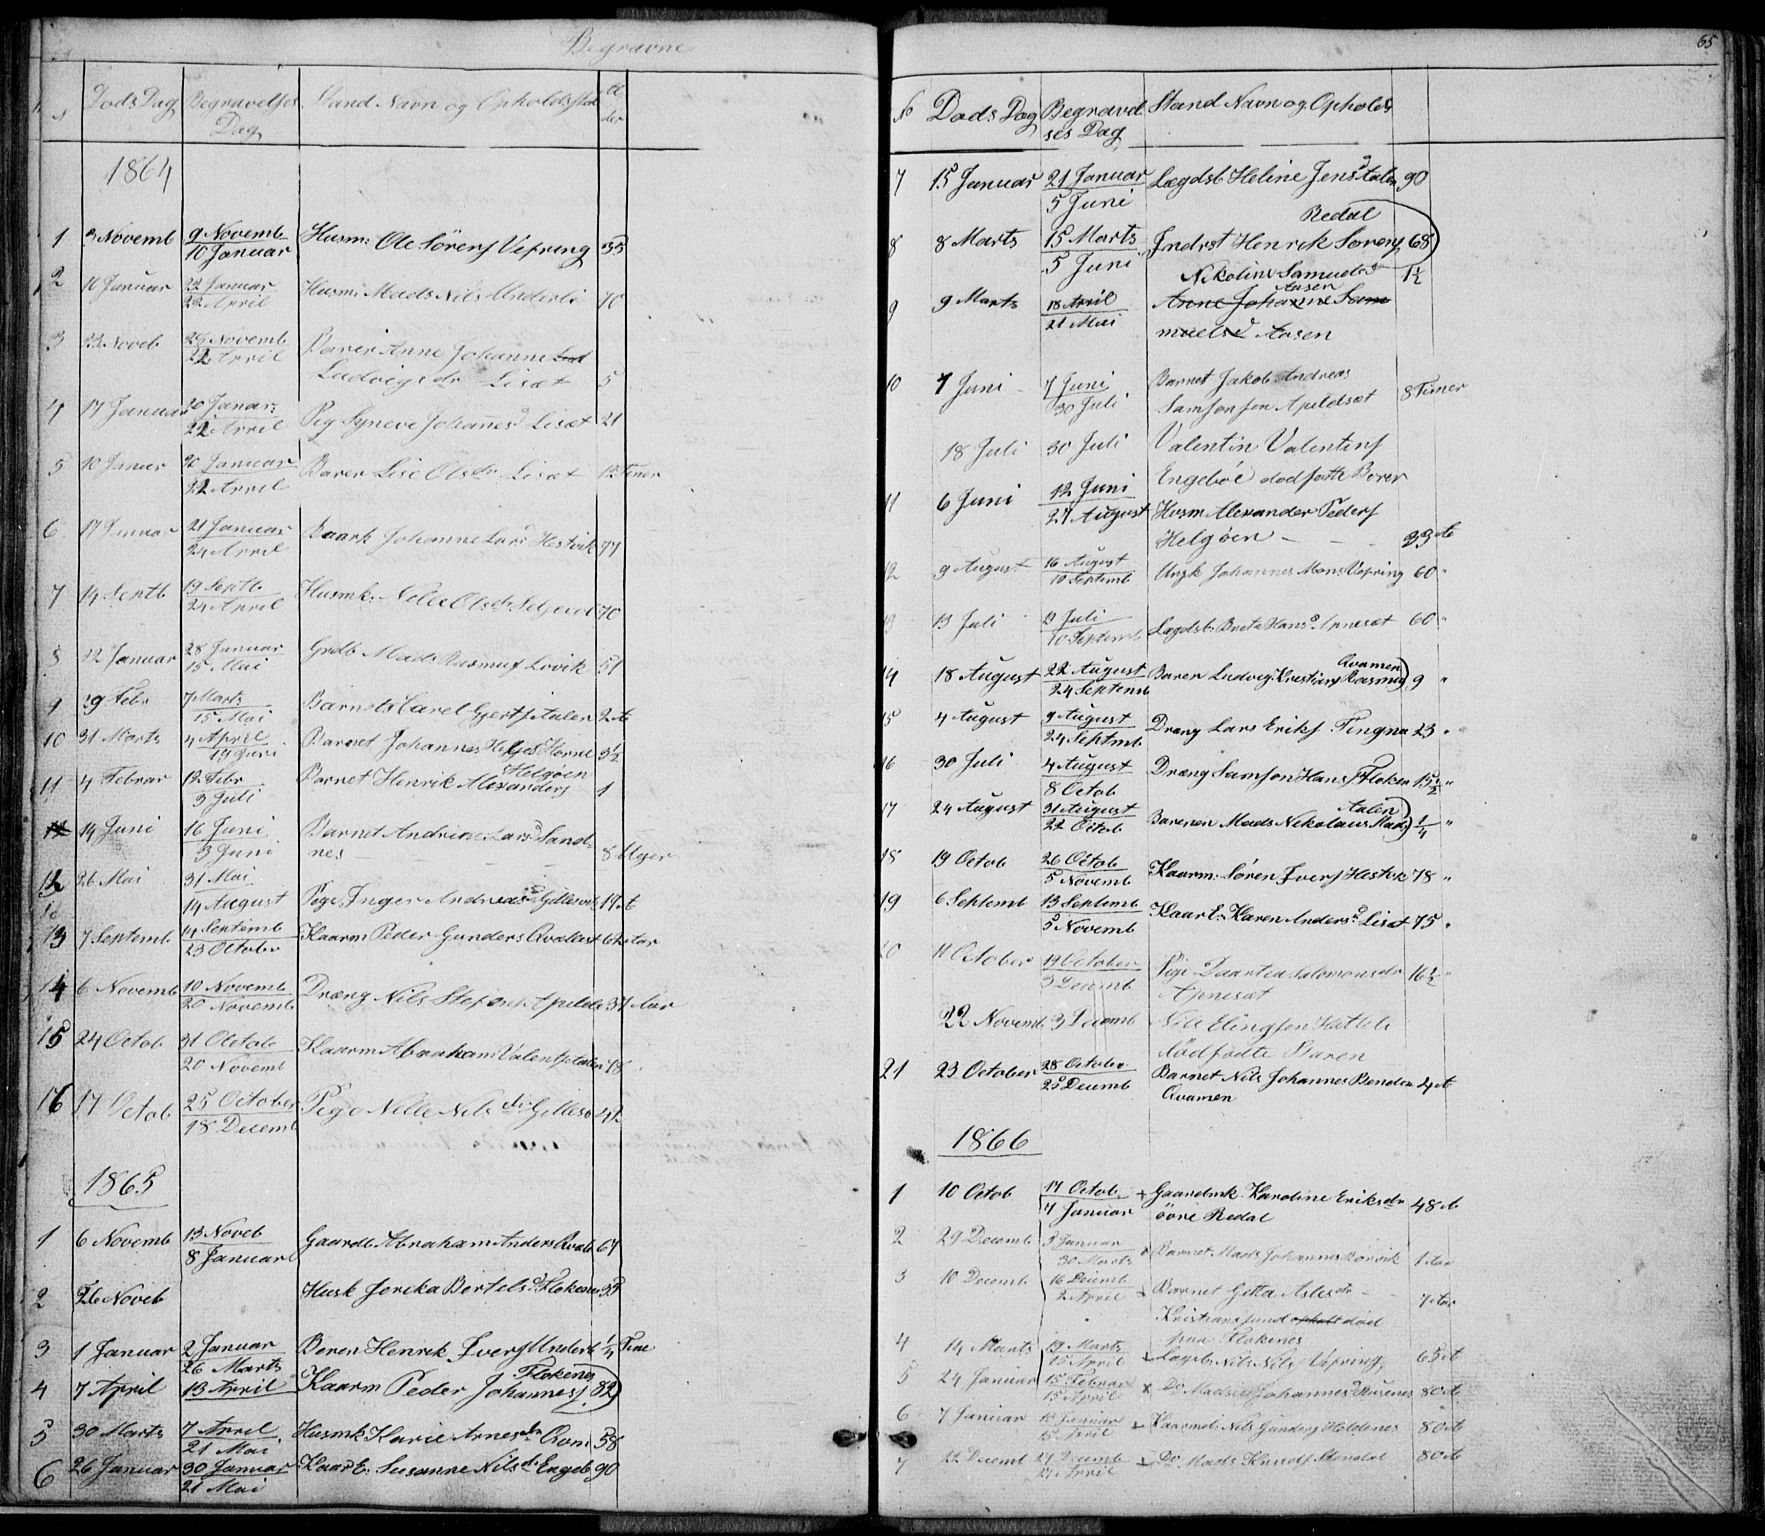 Begravne
Døds Dag Begravelses Dag Stand Navn og Opholdssted Al der
1864
1 3 Novemb 9 Novemb / 10 Januar Husm: Ole Sørens Vefring 35
2 16 Januar 22 Januar / 22 April Husm: Mads Nils Underli 70
3 23 Noveb 29 Novemb / 22 April Baren Anne Johanne
Ludvigsdr Lisæt 5
4 17 Januar 20 Janar: / 22 April Pig Syneve Johannesd Lisæt 21
5 10 Januar 20 Januar / 22 April Baren Lise Olsdr Lisæt 12 Timer
6 17 Januar 21 Januar / 24 April Kaark Johanne Lars Hestvik 77
7 14 Septb 19 Septb / 24 April Husmk: Nille Olsdr 70
8 22 Januar 28 Januar / 15 Mai Grdb Mads Rasmus Lovik 51
9 29 Febr 7 Marts / 15 Mai Barnet Carel Gjertsen Aalen 2 A
10 31 Marts 4 April / 19 Juni Barnet Johannes Helges Horne 3½
11 4 Februar 12 Febr / 3 Juli Barnet Henrik Alexanders Helgøen 1
14 Juni 16 Juni / 3 Juni Barnet Andrine Larsd Sand-
nes 8 Uger
12 26 Mai 31 Mai / 14 August Pige Inger Andreasd 19 A
13 7 Septemb 14 Septemb / 23 Octobr Kaarm Peder Gunders 62 Aar
14 6 Novemb 10 Novemb / 20 Novemb Dræng Nils Stefens Apelds 31 Aar
15 24 Octob 31 Octob / 20 Novemb Kaarm Abraham Valents Aalen 78
16 17 Octob 25 October / 18 Decemb Pige Nille Nilsdr 42
1865
1 6 Novemb 13 Noveb / 8 Januar Gaardb Abraham Anders 67
2 26 Noveb Husk Jereka Bertelsd Flokenes 35
3 1 Januar 2 Januar / 26 Marts Baren Henrik Ivers Underli ¼ Time
4 7 April 13 April Kaarm Peder Johannes Flokenes 82
5 30 Marts 7 April / 21 Mai Husmk Karie Arnesdr 58
6 26 Januar 30 Januar / 21 Mai KaarE: Susanne Nilsdr Engebø 90
65
No Døds Dag Begravelses Dag Stand Navn og Opholds
7 15 Januar 21 Januar / 5 Juni Lægdsb Heline Jensd Aalen 90
8 8 Marts 15 Marts / 5 Juni Indrst Henrik Sørens Redal 68
9 9 Marts 18 April / 21 Mai Nikoline Samuelsd Aasen 1½
Anne Johanne Sam
muelsd Aasen
10 7 Juni 7 Juni / 30 Juli Barnet Jakob Andreas
Samsonsen Apeldsæt 8 Timer
18 Juli 30 Juli Valentin Valentins
Engebøe dødfødte Baren
11 6 Juni 12 Juni / 27 August Husm Alexander Peders
Helgøen 33 A
12 9 August 16 August / 10 Septemb Ungk Johannes Mons Vefring 60 "
13 13 Juli 21 Juli / 10 Septemb Lægdsb: Brete Hansd Apnesæt 60 "
14 18 August 22 August / 24 Septemb Baren Ludvig Kristian Rasmus Qvamen 9 "
15 4 August 9 August / 24 Septmb Dræng Lars Eriks Tingna 23 "
16 30 Juli 4 August / 8 Octob Dræng Samson Hans Floken 15½ "
17 24 August 31 August / 22 Octob Barenen Mads Nikolaus Mads Aalen ¼ "
18 19 Octob 26 Octob / 5 Novemb Kaarm: Søren Ivers Hestvk 78 "
19 6 Septemb 13 Septemb / 5 Novemb KaarE: Karen Andersd Lisæt 75 "
20 11 October 19 October / 3 Decemb Pige Daartea Salomonsdr
Apnesæt 16½ "
22 Novemb 3 Decemb Nils Elingsen
dødfødte Baren
21 23 October 28 October / 25 Decemb Barnet Nils Johannes Benden 4 A
Qvamen
1866
1 10 Octob 17 Octob / 7 Januar Gaardmk Karoline Eriksdr 48 A
øvre Redal
2 29 Decemb 3 Januar / 30 Marts Barnet Mads Johannes 1 Aar
3 10 Decemb 16 Decemb / 2 April Barnet Gitta Aslesdr
Kristiansund død
paa Flokenes 7 Aar
4 14 Marts 19 Marts / 15 April Lægdb Nils Nils Vefring 65 A
5 24 Januar 15 Febuar / 15 April Do Johannesd 80 A
6 7 Januar 15 Januar / 15 April Kaarmd: Nils Gunders Holdenes 80 A
7 22 Decemb 27 Decemb / 27 April Do Mads Knuds Stendal 80 A